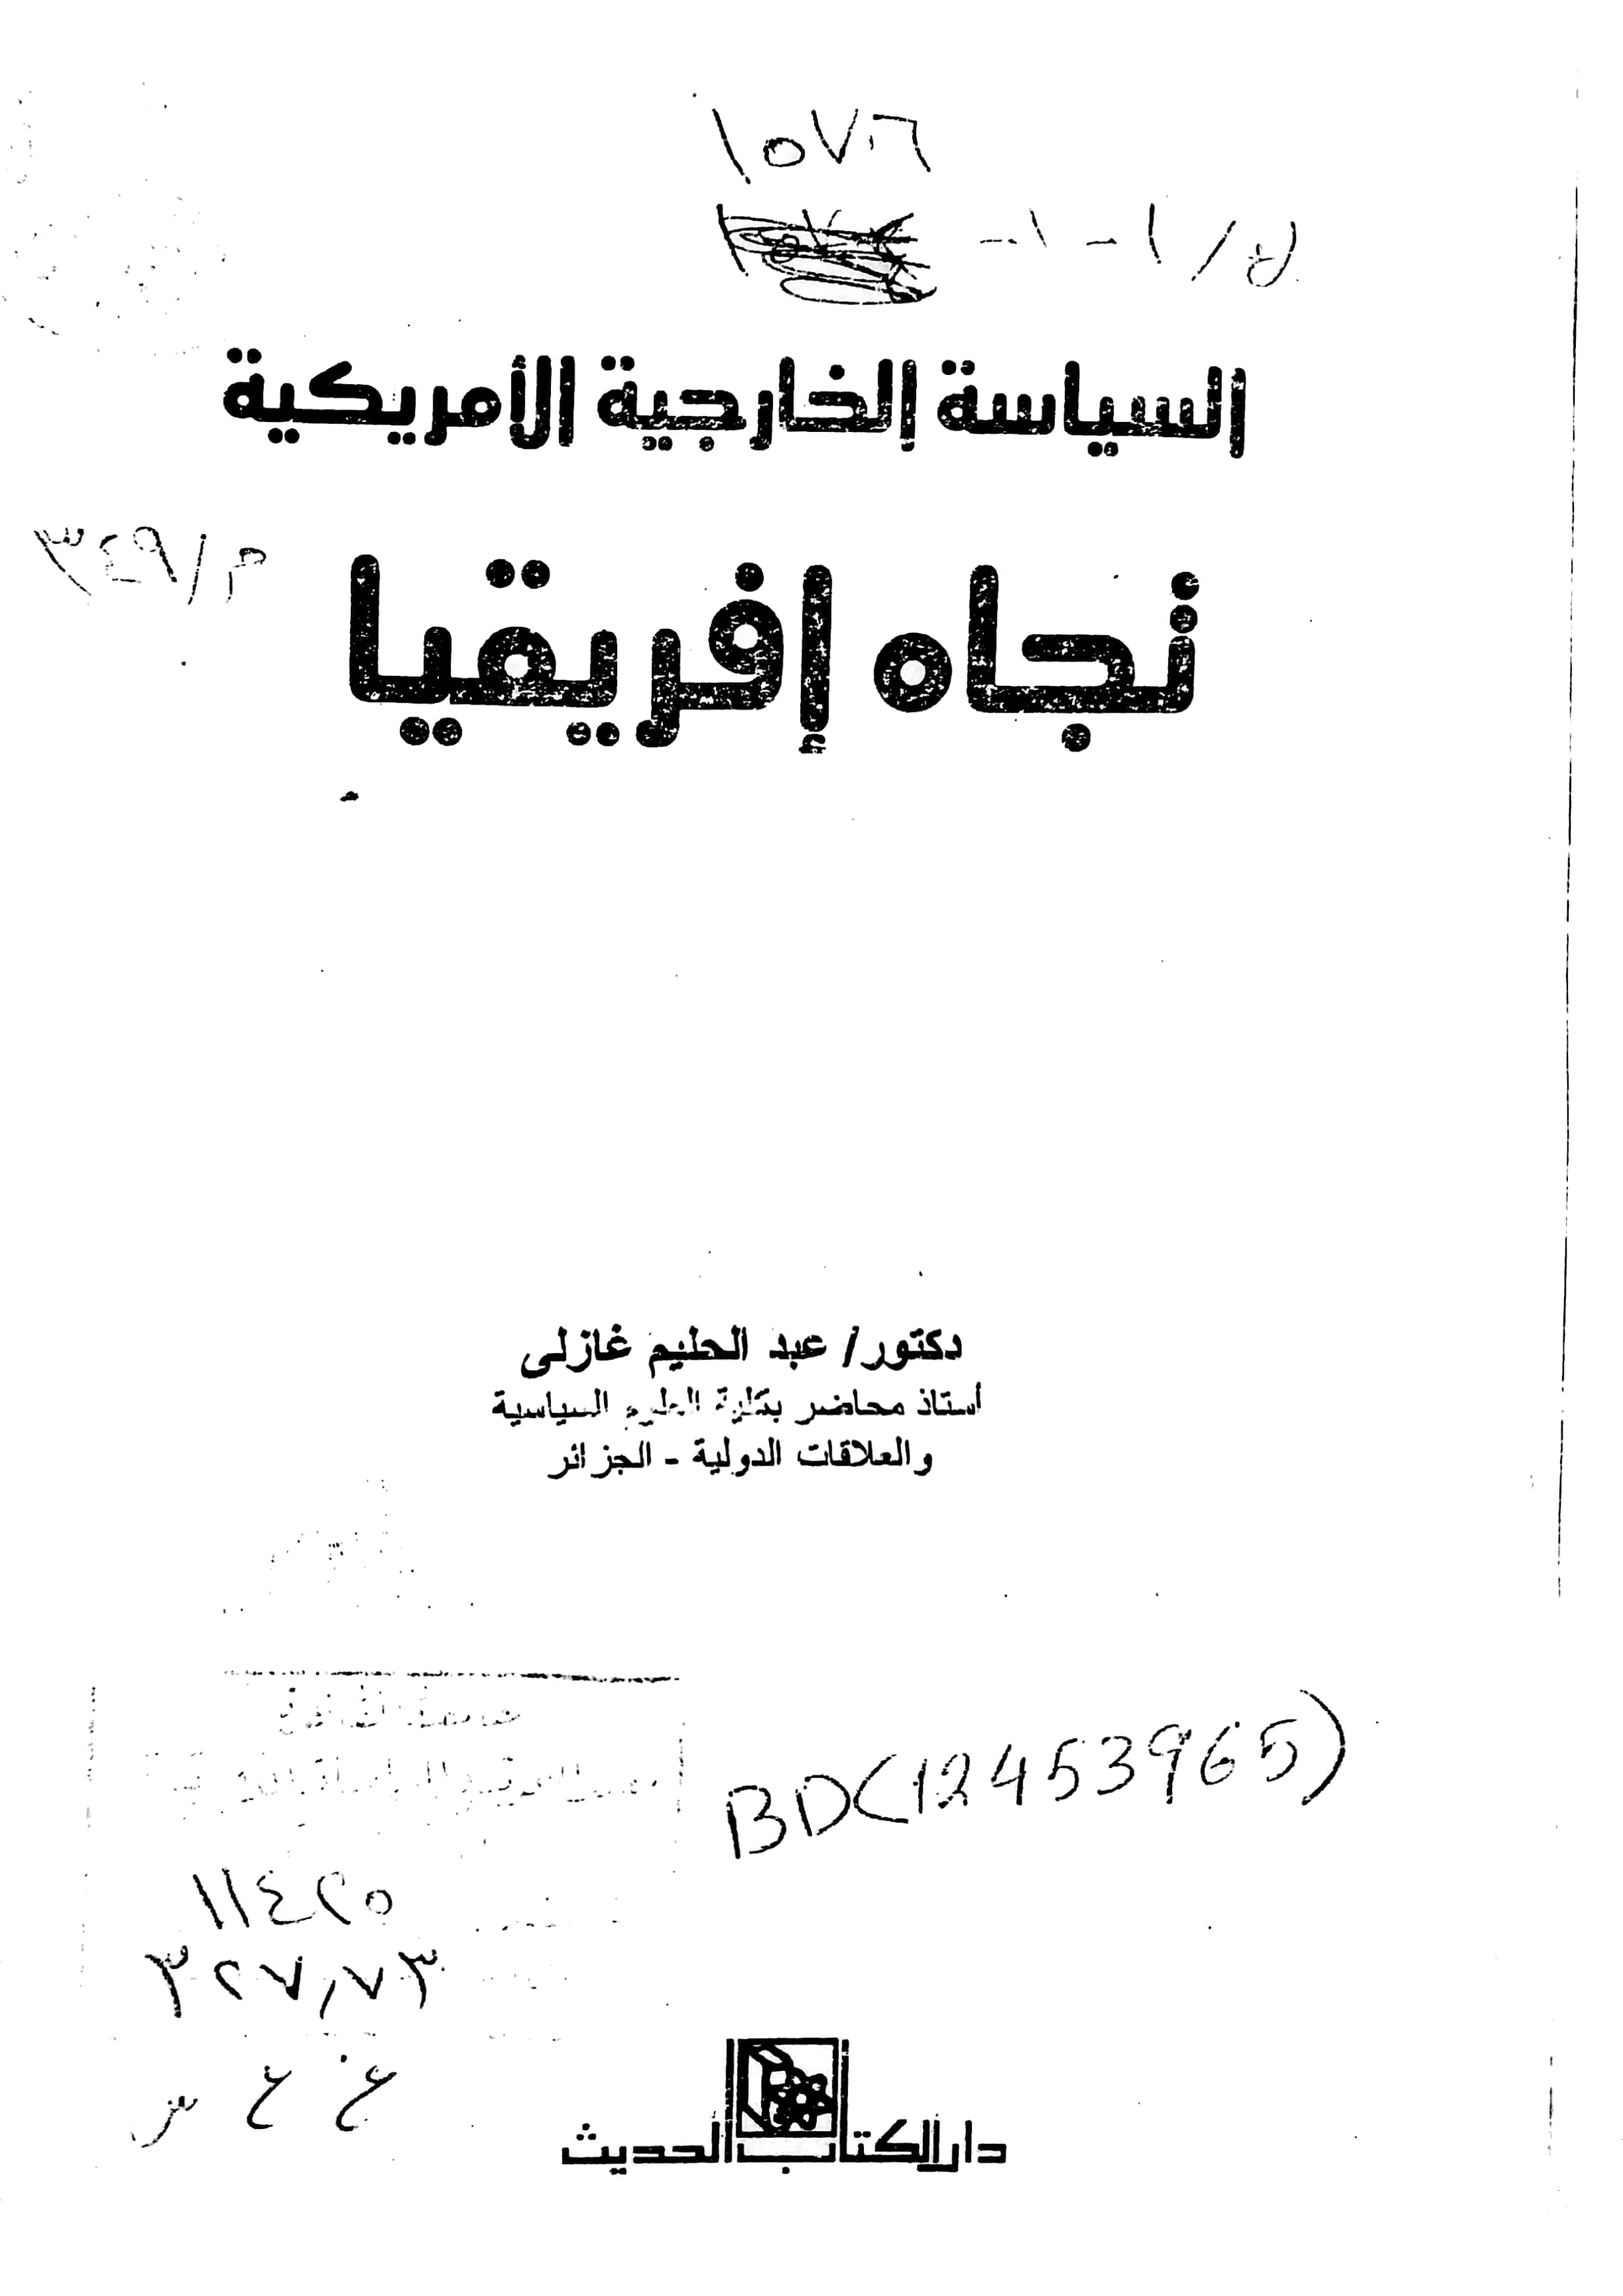 ١٥٧٠٦
السياسة الخارجية الأمريكية
تجاه إفريقيا
م/٣٤٩
دكتور/ عبد الحليم غازلى
أستاذ محاضر بكلية العلوم السياسية
والعلاقات الدولية - الجزائر
BD(12453965)
١١٤٢٥
٣٢٧,٧٣
غ ع س
دار الكتاب الحديث